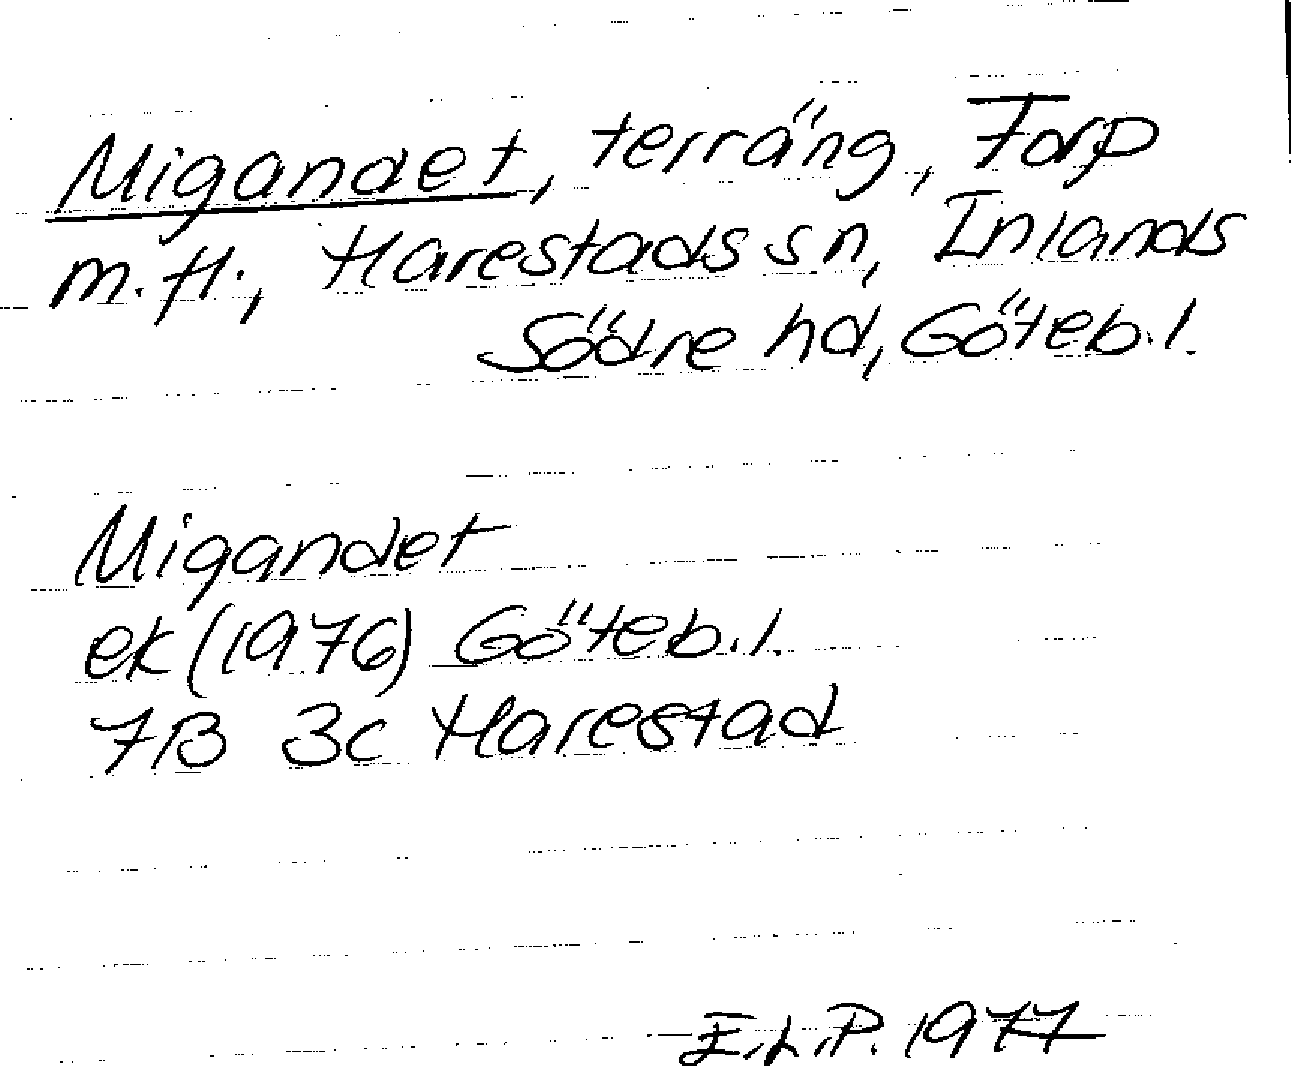 Migandet, terräng, Torp
m.fl., Harestads sn, Inlands
Södre hd, Göteb.l.
Migandet
ek (1976) Göteb.l.
7B 3c Harestad
E.L.P. 1977